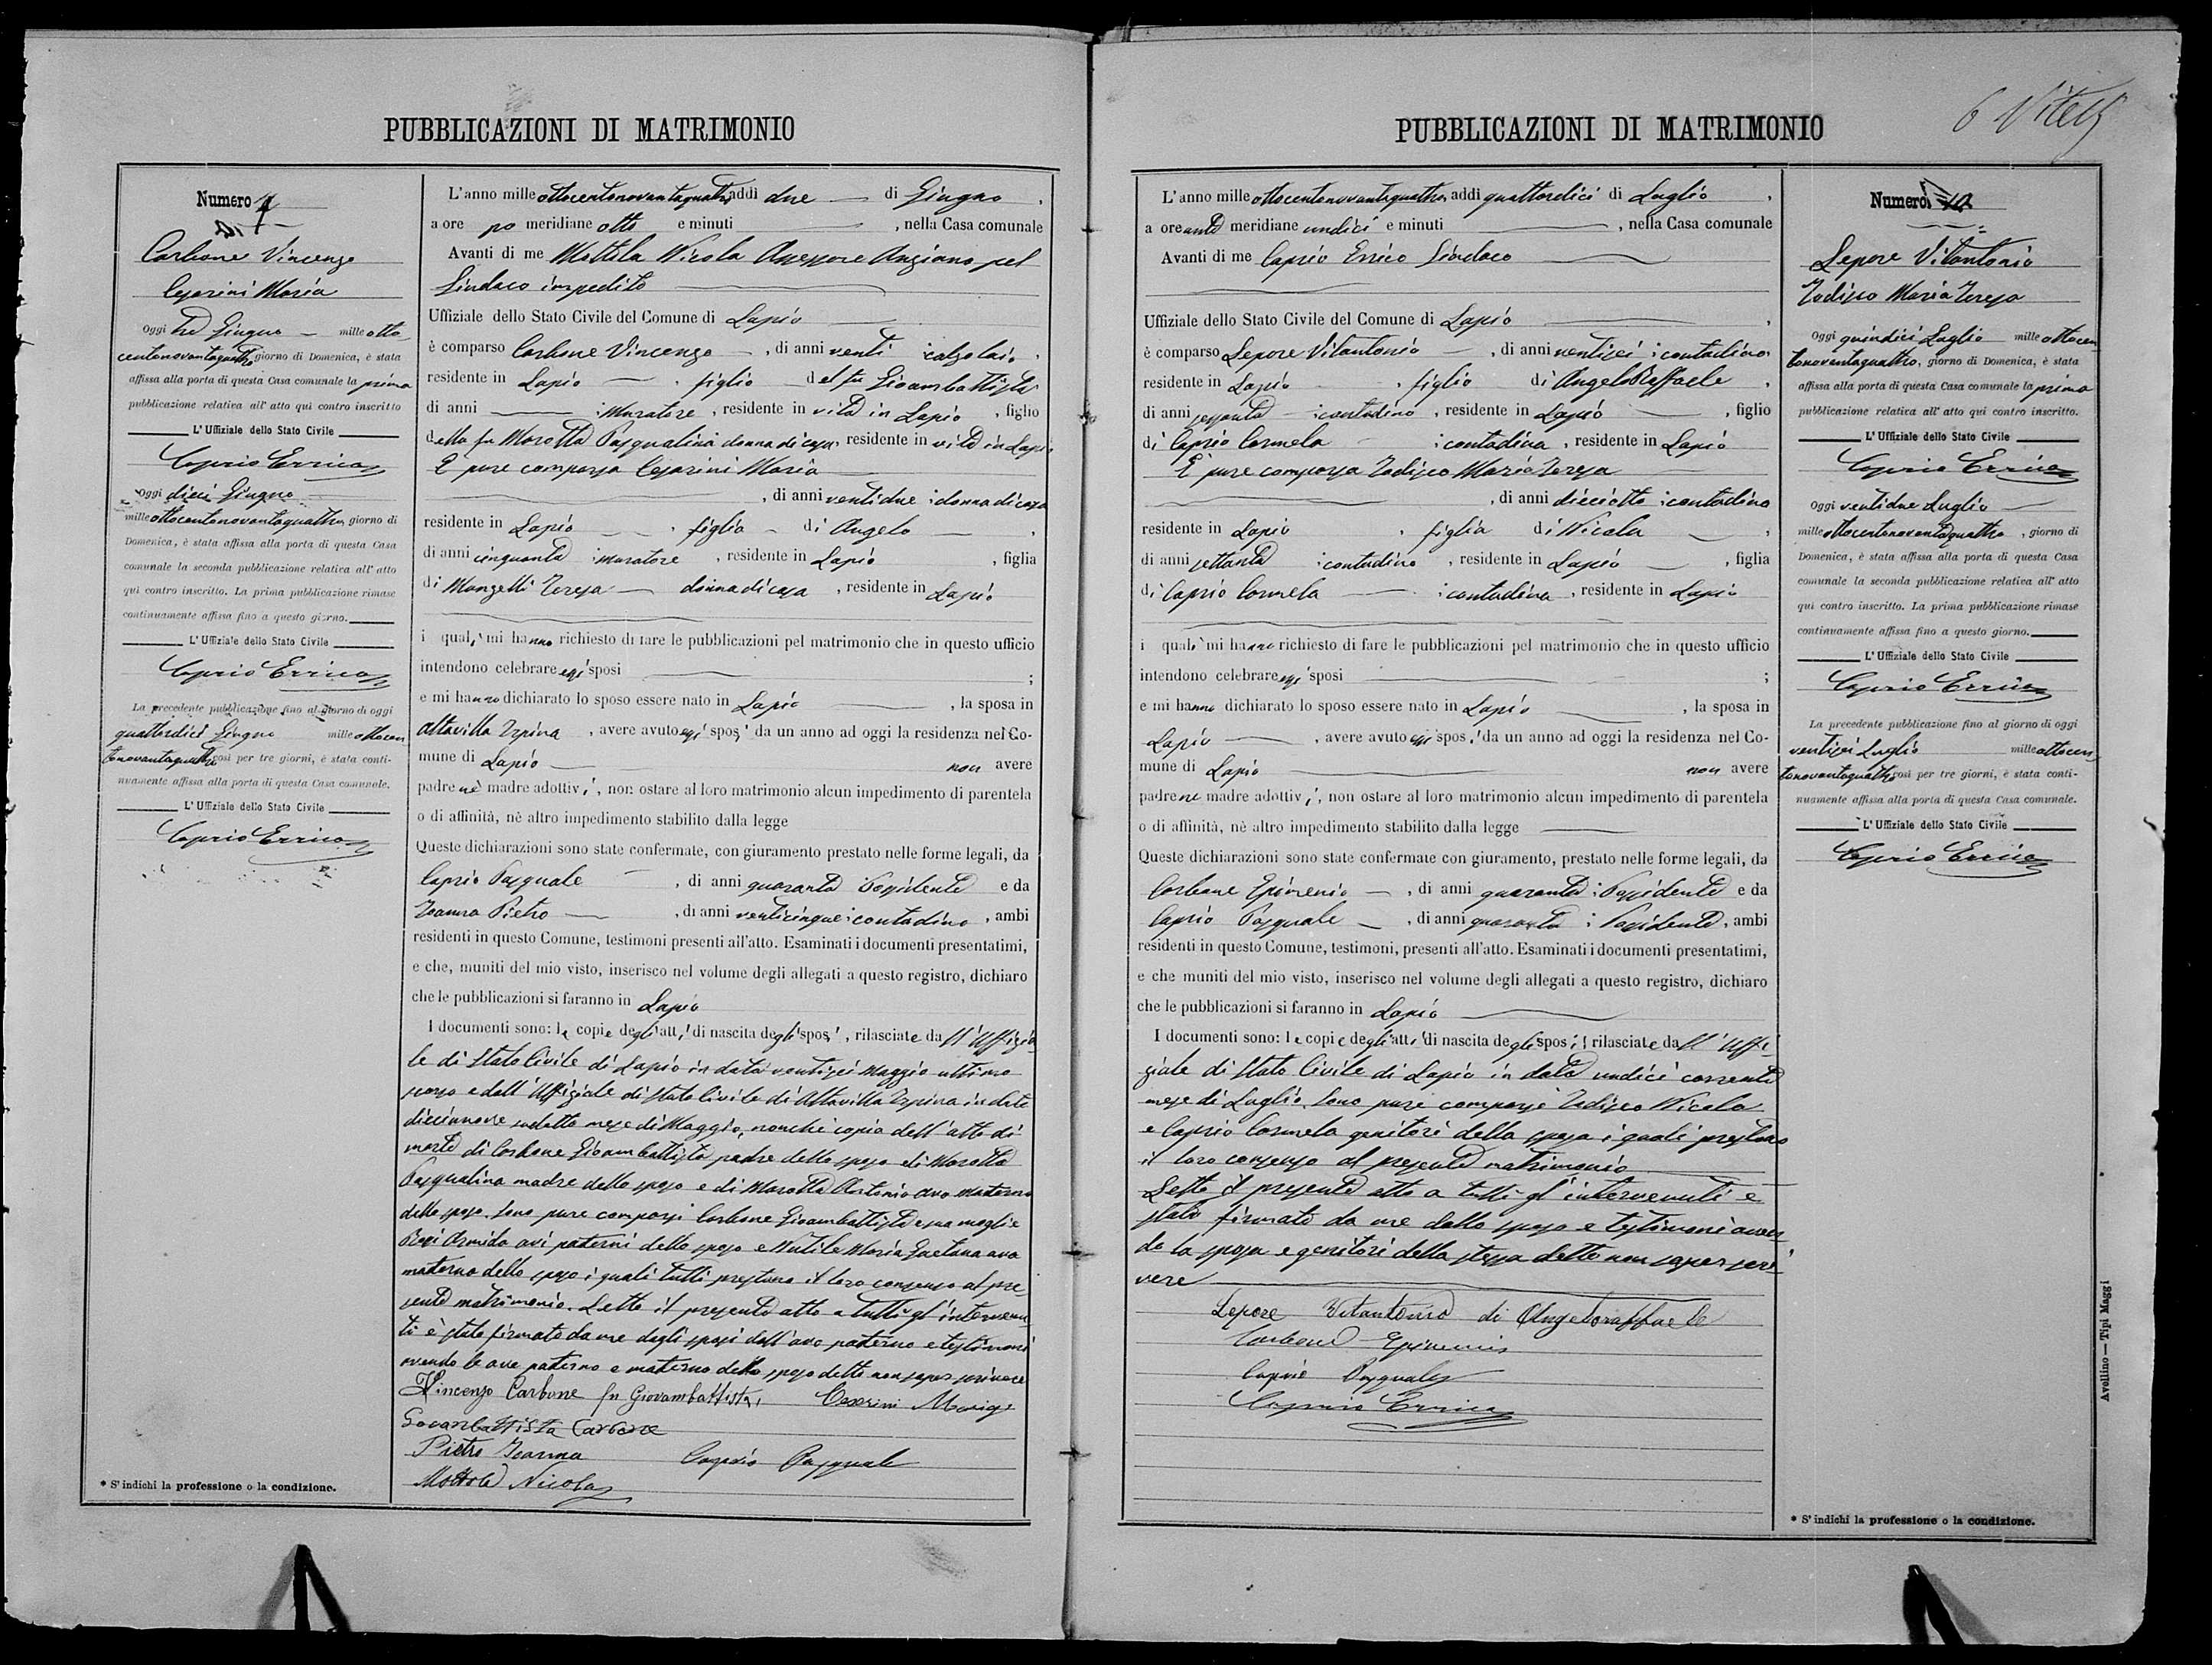 PUBBLICAZIONI DI MATRIMONIO
Numero
Carbone Vincenzo
Cesarini Maria
Oggi tre Giugno mille otto
centonovantaquattro giorno di Domenica, è stata
affissa alla porta di questa Casa comunale la prima
pubblicazione relativa all' atto qui contro inscritto
L' Uffiziale dello Stato Civile
Caprio Errico
Oggi dieci Giugno
mille ottocentonovantaquattro, giorno di
Domenica, è stata affissa alla porta di questa Casa
comunale la seconda pubblicazione relativa all' atto
qui contro inscritto. La prima pubblicazione rimase
continuamente affissa fino a questo giorno.
L' Uffiziale dello Stato Civile
Caprio Errico
La precedente pubblicazione fino al giorno di oggi
quattordici Giugno mille ottocen
tonovantaquattro così per tre giorni, è stata conti-
nuamente affissa alla porta di questa Casa comunale.
L' Uffiziale dello Stato Civile
Caprio Errico
* S' indichi la professione o la condizione.
L'anno mille ottocentonovantaquattro, addì due di Giugno,
a ore po meridiane otto e minuti , nella Casa comunale
Avanti di me Mottola Nicola Assessore Anziano pel
Sindaco impedito
Uffiziale dello Stato Civile del Comune di Lapio
è comparso Carbone Vincenzo, di anni venti calzolaio,
residente in Lapio, figlio del fu Gioambattista
di anni muratore, residente in vita in Lapio, figlio
della fu Marotta Pasqualina donna di casa, residente in vita in Lapio
E pure comparsa Cesarini Maria
, di anni ventidue donna di casa
residente in Lapio, figlia di Angelo,
di anni cinquanta muratore, residente in Lapio, figlia
di Manzelli Teresa donna di casa, residente in Lapio
i quali mi hanno richiesto di fare le pubblicazioni pel matrimonio che in questo ufficio
intendono celebrare essi sposi ;
e mi hanno dichiarato lo sposo essere nato in Lapio, la sposa in
Altavilla Irpina, avere avuto essi sposi da un anno ad oggi la residenza nel Co-
mune di Lapio non avere
padre nè madre adottivi, non ostare al loro matrimonio alcun impedimento di parentela
o di affinità, nè altro impedimento stabilito dalla legge
Queste dichiarazioni sono state confermate, con giuramento prestato nelle forme legali, da
Caprio Pasquale, di anni quaranta Possidente e da
Pietro, di anni venticinque contadino, ambi
residenti in questo Comune, testimoni presenti all'atto. Esaminati i documenti presentatimi,
e che, muniti del mio visto, inserisco nel volume degli allegati a questo registro, dichiaro
che le pubblicazioni si faranno in Lapio
I documenti sono: le copie degli atti di nascita degli sposi, rilasciate dall'Uffizia
le di Stato Civile di Lapio in data ventisei Maggio ultimo
scorso e dall'Uffiziale di Stato Civile di Altavilla Irpina in data
diciannove sudetto mese di Maggio, nonchè copia dell'atto di
morte di Carbone Gioambattista padre dello sposo di Marotta
Pasqualina madre dello sposo e di Marotta Antonio avo materno
dello sposo. Sono pure comparsi Carbone Gioambattista e sua moglie
Armida avi paterni dello sposo e Nutile Maria Gaetana ava
materna dello sposo i quali tutti prestano il loro consenso al pre
sente matrimonio. Letto il presente atto a tutti gl'intervenu
ti è stato firmato da me dagli sposi dall'avo paterno e testimoni
avendo le ave paterna e materna dello sposo detto non saper scrivere
Vincenzo Carbone fu Giovambattista, Cesarini Maria
Giovanbattista Carbone
Pietro Caprio Pasquale
Mottola Nicola
PUBBLICAZIONI DI MATRIMONIO
L'anno mille ottocentonovantaquattro, addì quattordici di Luglio,
a ore ante meridiane undici e minuti , nella Casa comunale
Avanti di me Caprio Errico Sindaco
Uffiziale dello Stato Civile del Comune di Lapio,
è comparso Lepore Vitantonio, di anni ventisei contadino
residente in Lapio, figlio di Angelo Raffaele,
di anni sessanta contadino, residente in Lapio, figlio
di Caprio Carmela contadina, residente in Lapio
E pure comparsa Zodisco Maria Teresa
, di anni dieciotto contadina
residente in Lapio, figlia di Nicola,
di anni settanta contadino, residente in Lapio, figlia
di Caprio Carmela contadina, residente in Lapio
i quali mi hanno richiesto di fare le pubblicazioni pel matrimonio che in questo ufficio
intendono celebrare essi sposi ;
e mi hanno dichiarato lo sposo essere nato in Lapio, la sposa in
Lapio, avere avuto essi sposi da un anno ad oggi la residenza nel Co-
mune di Lapio non avere
padre ne madre adottivi, non ostare al loro matrimonio alcun impedimento di parentela
o di affinità, nè altro impedimento stabilito dalla legge
Queste dichiarazioni sono state confermate con giuramento, prestato nelle forme legali, da
Carbone Epimenio, di anni quaranta Possidente e da
Caprio Pasquale, di anni quaranta Possidente, ambi
residenti in questo Comune, testimoni, presenti all'atto. Esaminati i documenti presentatimi,
e che muniti del mio visto, inserisco nel volume degli allegati a questo registro, dichiaro
che le pubblicazioni si faranno in Lapio
I documenti sono: le copie degli atti di nascita degli sposi rilasciate dall'Uffi-
ziale di Stato Civile di Lapio in data undici corrente
mese di Luglio. Sono pure comparsi Zodisco Nicola
e Caprio Carmela genitori della sposa i quali prestano
il loro consenso al presente matrimonio
Letto il presente atto a tutti gl'intervenuti è
stato firmato da me dallo sposo e testimoni aven
do la sposa e genitori della stessa detto non saper scri
vere
Lepore Vitantonio di Angeloraffaele
Carbone Epimenio
Caprio Pasquale
Caprio Errico
Numero
Lepore Vitantonio
Zodisco Maria Teresa
Oggi quindici Luglio mille ottocen
tonovantaquattro, giorno di Domenica, è stata
affissa alla porta di questa Casa comunale la prima
pubblicazione relativa all' atto qui contro inscritto.
L' Uffiziale dello Stato Civile
Caprio Errico
Oggi ventidue Luglio
mille ottocentonovantaquattro, giorno di
Domenica, è stata affissa alla porta di questa Casa
comunale la seconda pubblicazione relativa all' atto
qui contro inscritto. La prima pubblicazione rimase
continuamente affissa fino a questo giorno.
L' Uffiziale dello Stato Civile
Caprio Errico
La precedente pubblicazione fino al giorno di oggi
ventisei Luglio mille ottocen
tonovantaquattro così per tre giorni, è stata conti-
nuamente affissa alla porta di questa Casa comunale.
L' Uffiziale dello Stato Civile
Caprio Errico
* S' indichi la professione o la condizione.
Avellino — Tipi Maggi